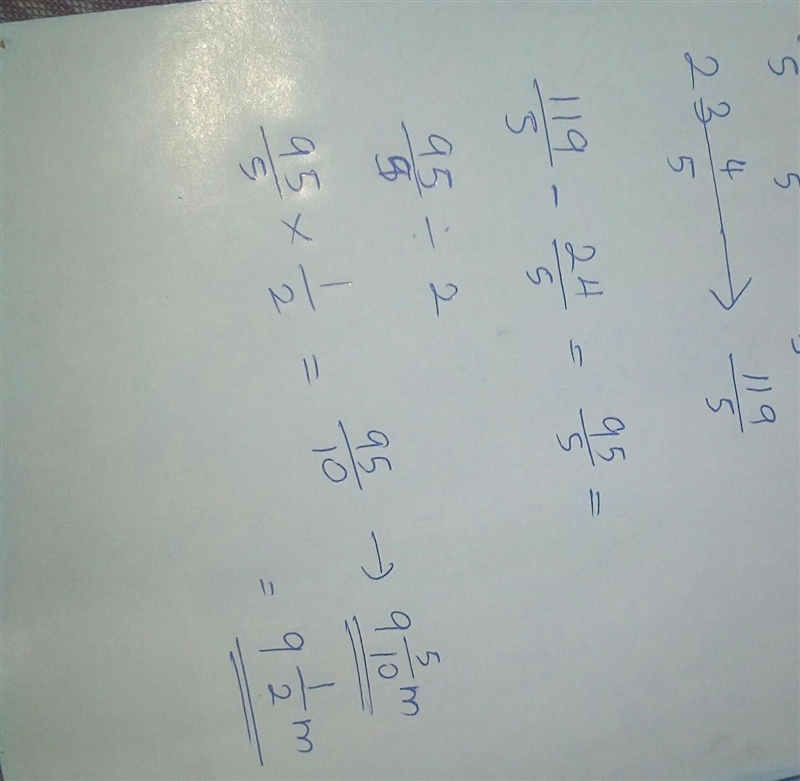 5 5
2 3 4/5 → 119/5
119/5 - 24/5 = 95/5 =
95/5 ÷ 2
95/5 × 1/2 = 95/10 → 9 5/10 m
= 9 1/2 m